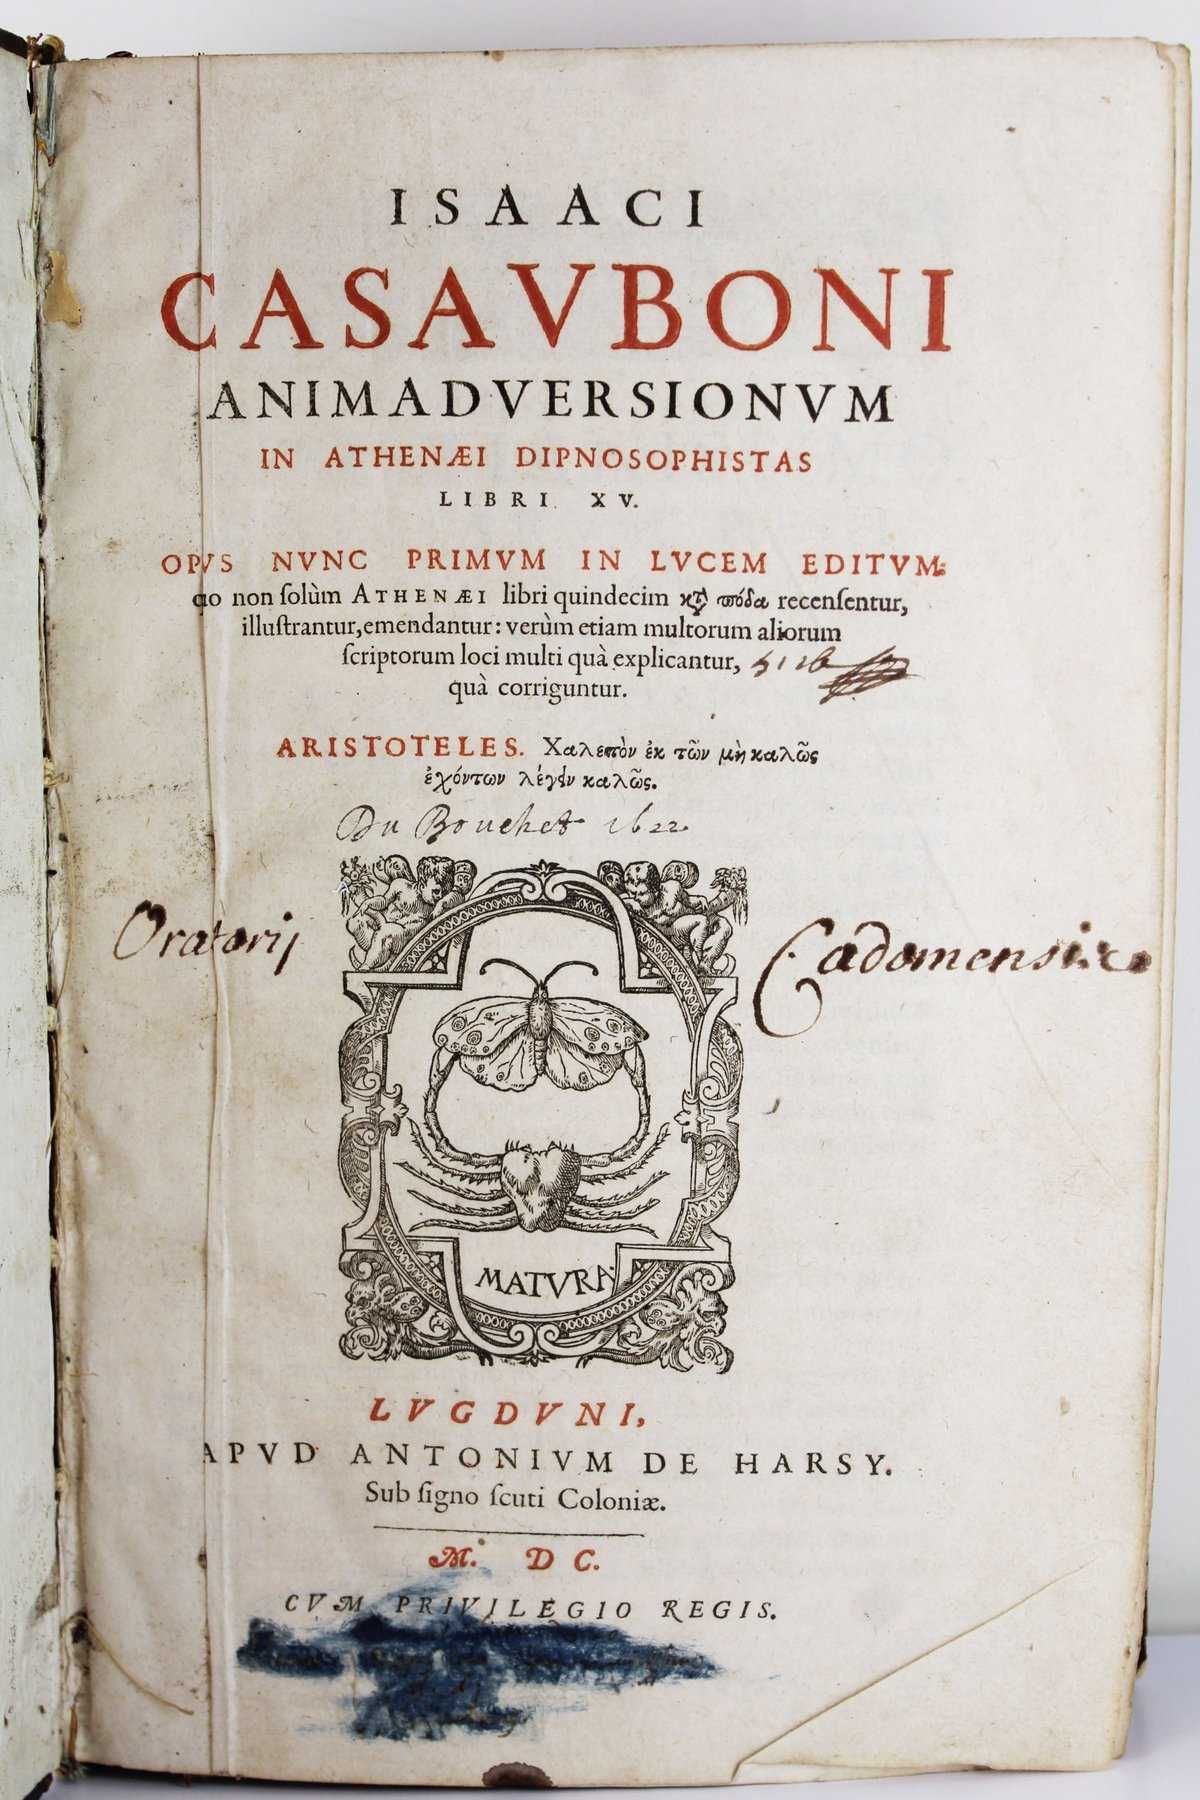 ISAACI
CASAVBONI
ANIMADVERSIONVM
IN ATHENÆI DIPNOSOPHISTAS
LIBRI XV.
OPVS NVNC PRIMVM IN LVCEM EDITVM:
quo non ſolùm ATHENÆI libri quindecim κτ πόδα recenſentur,
illuſtrantur, emendantur: verùm etiam multorum aliorum
ſcriptorum loci multi quà explicantur,
quà corriguntur.
ARISTOTELES. Χαλεπὸν ἐκ τῶν μὴ καλῶς
ἐχόντων λέγειν καλῶς.
Du Bouchet 1622
Oratorij Cadomensis
MATVRA
LVGDVNI,
APVD ANTONIVM DE HARSY.
Sub ſigno ſcuti Coloniæ.
M. DC.
CVM PRIVILEGIO REGIS.